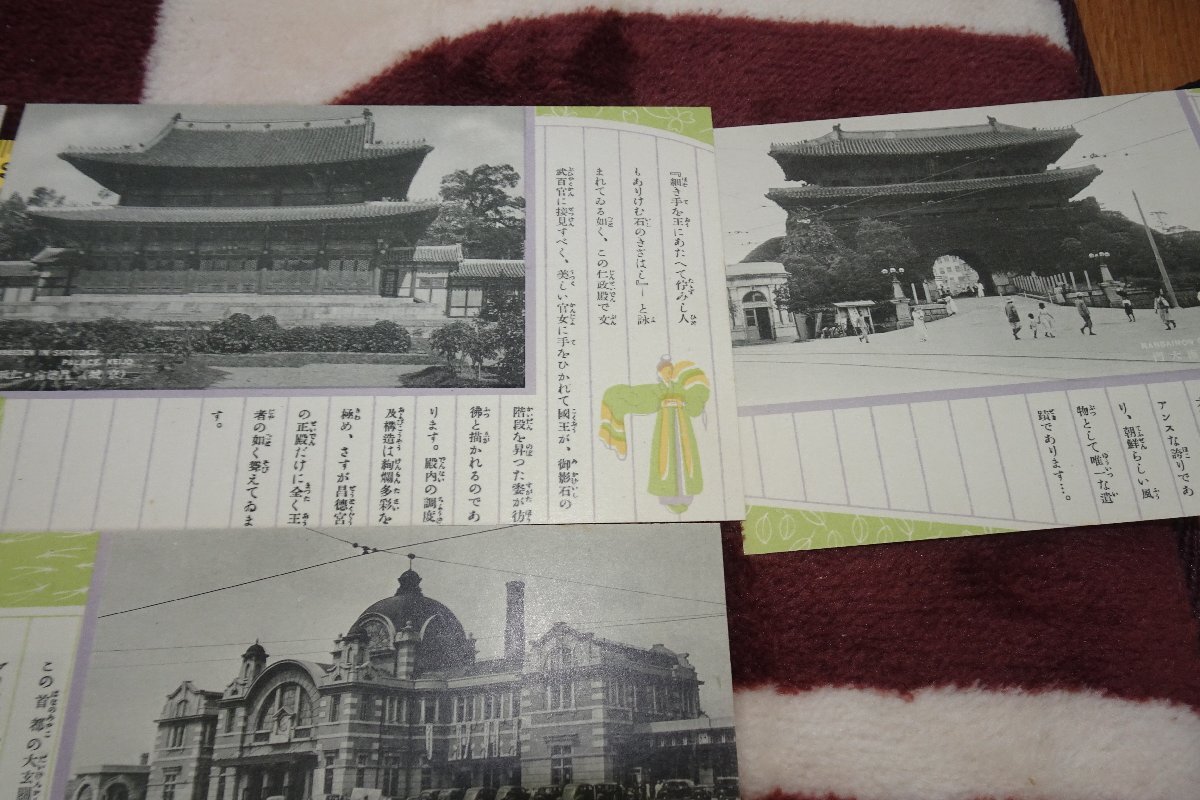 『細き手を王にあたへて佇みし人
もありけむ石のきざはし』―と詠
まれてゐる如く、この仁政殿で文
武百官に接見すべく、美しい官女に手をひかれて國王が、御影石の
階段を昇つた姿が彷
彿と描かれるのであ
ります。殿内の調度
及構造は絢爛多彩を
極め、さすが昌德宮
の正殿だけに全く王
者の如く聳えてゐま
す。
PALACE KEIJO
アンスな誇りであ
り、朝鮮らしい風
物として唯一な遺
蹟であります…。
NANDAIMON
門大
この首都の大玄關